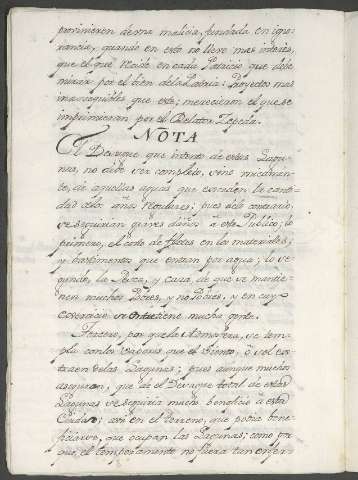 porvinieren de una malicia, fundada en igno-
rancia, quando en esto no llevo mas interes,
que el que reside en cada Patricio, que debe
mirar por el bien dela Patria: Proyectos mas
inasequibles que este; merecieron el que se
imprimieran por el Relator Zepeda.
NOTA
El Desague que intento de estas Lagu-
nas, no debe ser completo, sino unicamen-
te, de aquellas aguas que exceden la canti-
dad delos años regulares; pues delo contrario,
se seguirian graves daños à este Publico; lo
primero, el costo de fletes en los materiales,
y bastimentos que entran por agua; lo se-
gundo, la Pesca, y Caza, de que se mantie-
nen muchos Pobres, y no Pobres, y en cuyo
Comercio se entretiene mucha gente.
Tercero, por que la Atmosfera, se tem-
pla con los vapores, que el viento, ò sol ex-
traen delas Lagunas; pues aunque muchos
aseguran, que de el Desague total de estas
Lagunas se seguiria mucho beneficio à esta
Ciudad; asi en el terreno, que podia bene-
ficiarse, que ocupan las Lagunas; como por
que, el temperamento no fuera tan enfer-